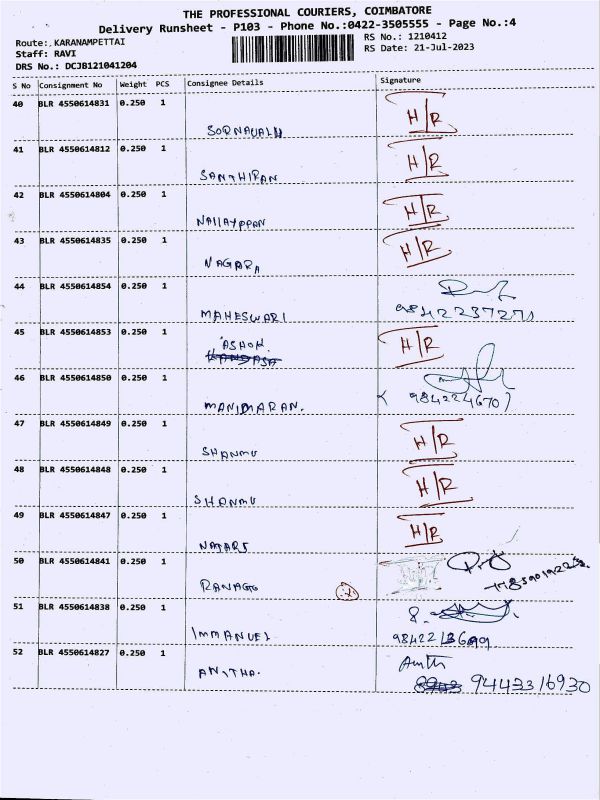 THE PROFESSIONAL COURIERS, COIMBATORE
Delivery Runsheet - P103 - Phone No.:0422-3505555 - Page No.:4
Route: KARANAMPETTAI RS No.: 1210412
Staff: RAVI RS Date: 21-Jul-2023
DRS No.: DCJB121041204
S No Consignment No Weight PCS Consignee Details Signature
40 BLR 4550614831 0.250 1 H/R
41 BLR 4550614812 0.250 1 H/R
SANTHIRAN
42 BLR 4550614804 0.250 1 H/R
NAllAYPPAN
43 BLR 4550614835 0.250 1 H/R
NAGARA
44 BLR 4550614854 0.250 1
MAHESWARI
45 BLR 4550614853 0.250 1 H/R
ASHOK
46 BLR 4550614850 0.250 1
MANIMARAN.
47 BLR 4550614849 0.250 1 H/R
SHANMU
48 BLR 4550614848 0.250 1 H/R
SHANMU
49 BLR 4550614847 0.250 1 H/R
50 BLR 4550614841 0.250 1
51 BLR 4550614838 0.250 1
IMMANUEL
52 BLR 4550614827 0.250 1
ANITHA. 9443316930